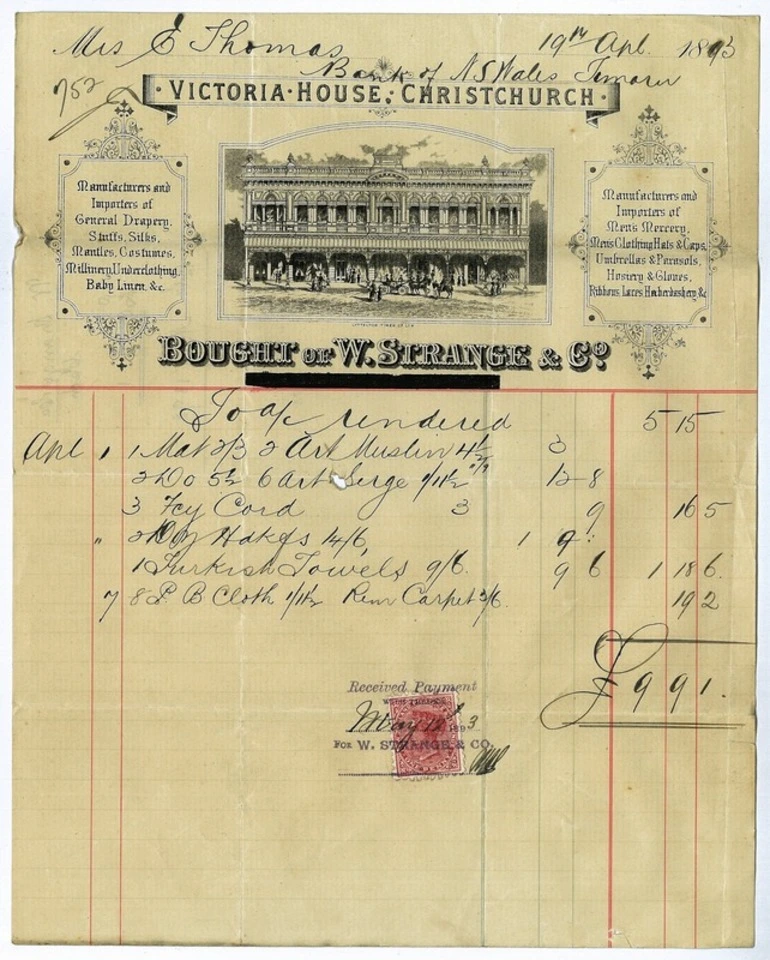 Mrs E Thomas 19th Apl. 1893
Bank of N S Wales Timaru
752
VICTORIA · HOUSE, CHRISTCHURCH ·
Manufacturers and
Importers of
General Drapery,
Stuffs, Silks,
Mantles, Costumes,
Millinery, Underclothing,
Baby Linen, &c.
Manufacturers and
Importers of
Men's Mercery,
Men's Clothing Hats & Caps,
Umbrellas & Parasols,
Hosiery & Gloves,
Ribbons, Laces, Haberdashery, &c
LYTTELTON TIMES CO LTD
BOUGHT OF W. STRANGE & Co.
To a/c rendered 5 15
Apl 1 1 Mat 2/3 2 Art Muslin 4½ 3
2 Do 5½ 6 Art Serge 1/11½ 12 8
3 Fcy Cord 3 9 16 5
" 2 Doz Hdkfs 14/6 1 9 :
1 Turkish Towels 9/6 9 6 1 18 6
7 8 P. B Cloth 1/1½ Rem Carpet 3/6. 19 2
£ 9 9 1
Received Payment
May 12 1893
FOR W. STRANGE & CO.